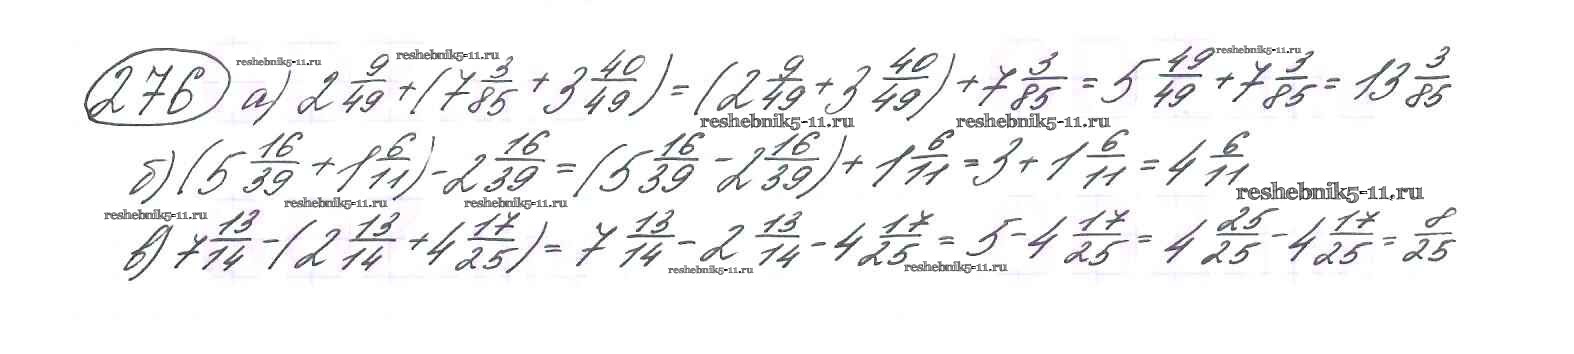 276 а) 2 9/49 + (7 3/85 + 3 40/49) = (2 9/49 + 3 40/49) + 7 3/85 = 5 49/49 + 7 3/85 = 13 3/85
б) (5 16/39 + 1 6/11) - 2 16/39 = (5 16/39 - 2 16/39) + 1 6/11 = 3 + 1 6/11 = 4 6/11
в) 7 13/14 - (2 13/14 + 4 17/25) = 7 13/14 - 2 13/14 - 4 17/25 = 5 - 4 17/25 = 4 25/25 - 4 17/25 = 8/25
reshebnik5-11.ru
reshebnik5-11.ru
reshebnik5-11.ru
reshebnik5-11.ru
reshebnik5-11.ru
reshebnik5-11.ru
reshebnik5-11.ru
reshebnik5-11.ru
reshebnik5-11.ru
reshebnik5-11.ru
reshebnik5-11.ru